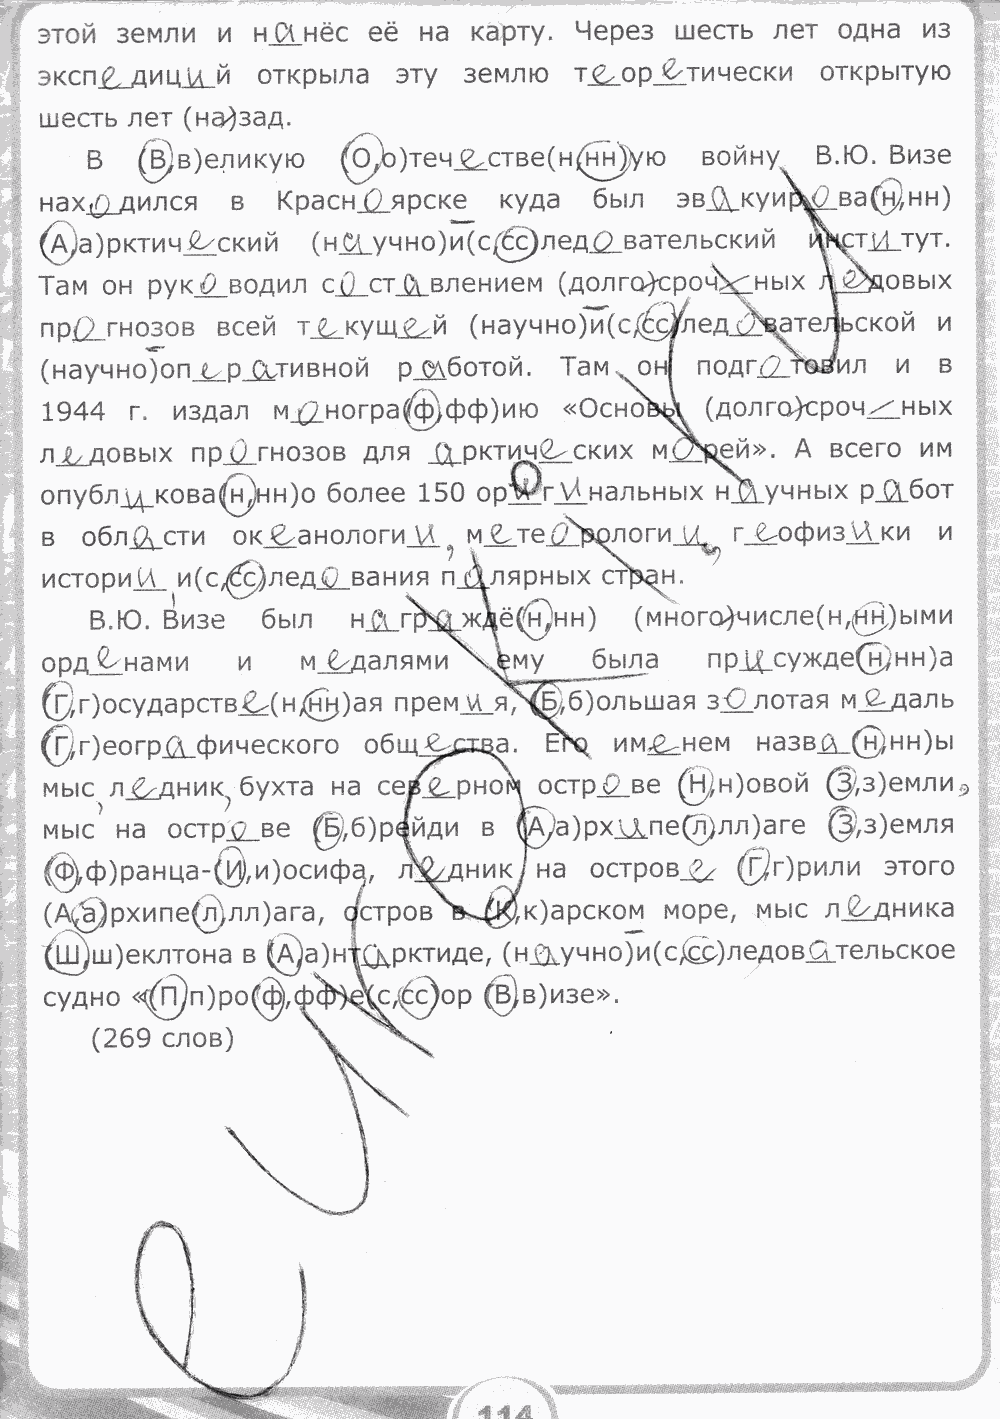 этой земли и нанёс её на карту. Через шесть лет одна из
экспедиций открыла эту землю теоретически открытую
шесть лет (на)зад.
В (В,в)еликую (О,о)течестве(н,нн)ую войну В.Ю. Визе
находился в Красноярске куда был эвакуирова(н,нн)
(А,а)рктический (научно)и(с,сс)ледовательский институт.
Там он руководил составлением (долго)срочных ледовых
прогнозов всей текущей (научно)и(с,сс)ледовательской и
(научно)оперативной работой. Там он подготовил и в
1944 г. издал моногра(ф,фф)ию «Основы (долго)срочных
ледовых прогнозов для арктических морей». А всего им
опубликова(н,нн)о более 150 оригинальных научных работ
в области океанологии, метеорологии, геофизики и
истории и(с,сс)ледования полярных стран.
В.Ю. Визе был награждё(н,нн) (много)числе(н,нн)ыми
орденами и медалями ему была присужде(н,нн)а
(Г,г)осударстве(н,нн)ая премия, (Б,б)ольшая золотая медаль
(Г,г)еографического общества. Его именем назва(н,нн)ы
мыс, ледник, бухта на северном острове (Н,н)овой (З,з)емли,
мыс на острове (Б,б)рейди в (А,а)рхипе(л,лл)аге (З,з)емля
(Ф,ф)ранца-(И,и)осифа, ледник на острове (Г,г)рили этого
(А,а)рхипе(л,лл)ага, остров в (К,к)арском море, мыс ледника
(Ш,ш)еклтона в (А,а)нтарктиде, (научно)и(с,сс)ледовательское
судно «(П,п)ро(ф,фф)е(с,сс)ор (В,в)изе».
(269 слов)
114